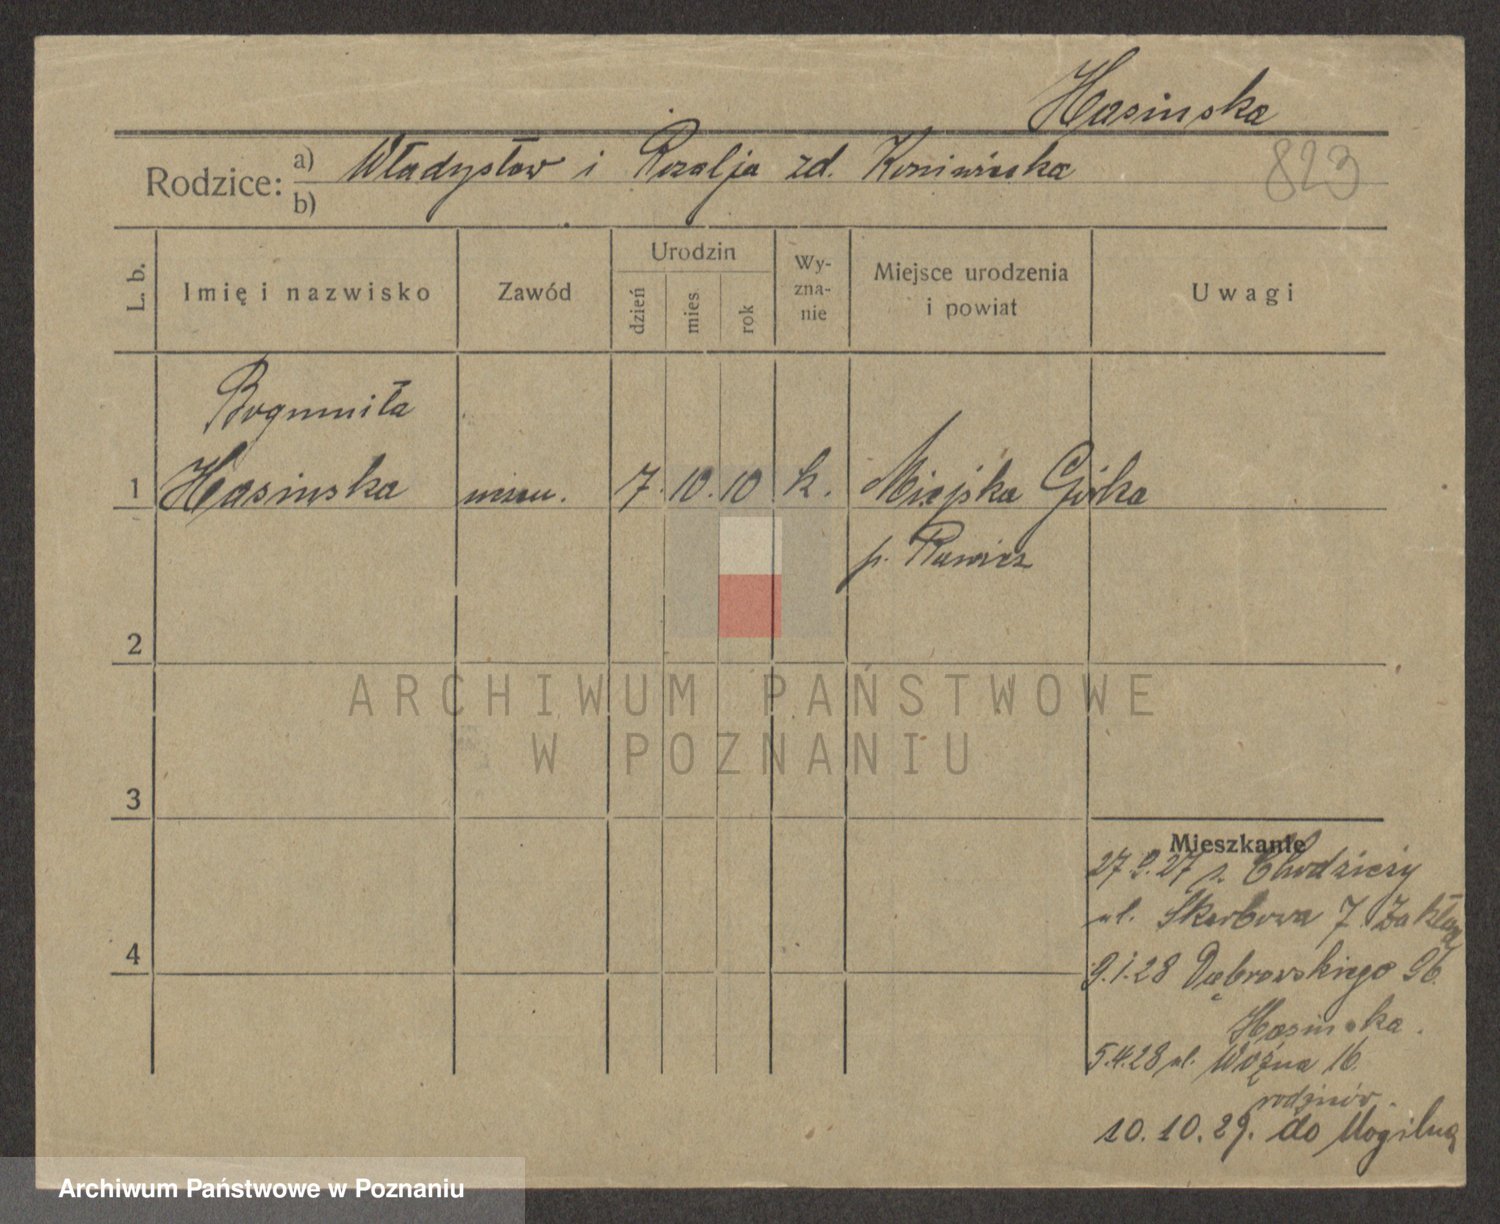 Hasinska
Rodzice: a) Władysław i Rozalja zd.
b)
823
L. b.
Imię i nazwisko
Zawód
Urodzin
dzień
mies.
rok
Wy-
zna-
nie
Miejsce urodzenia
i powiat
Uwagi
Bogumiła
1 Hasinska uczen. 7. 10. 10 k. Miejska Górka
p. Rawicz
2
3
4
ARCHIWUM PAŃSTWOWE
W POZNANIU
Mieszkanie
27.9.27 z Chodzieży
ul. Skarbowa 7
9.1.28 Dąbrowskiego 96
Hasinska.
5.4.28 ul. Woźna 16
10.10.29. do Mogilna
Archiwum Państwowe w Poznaniu